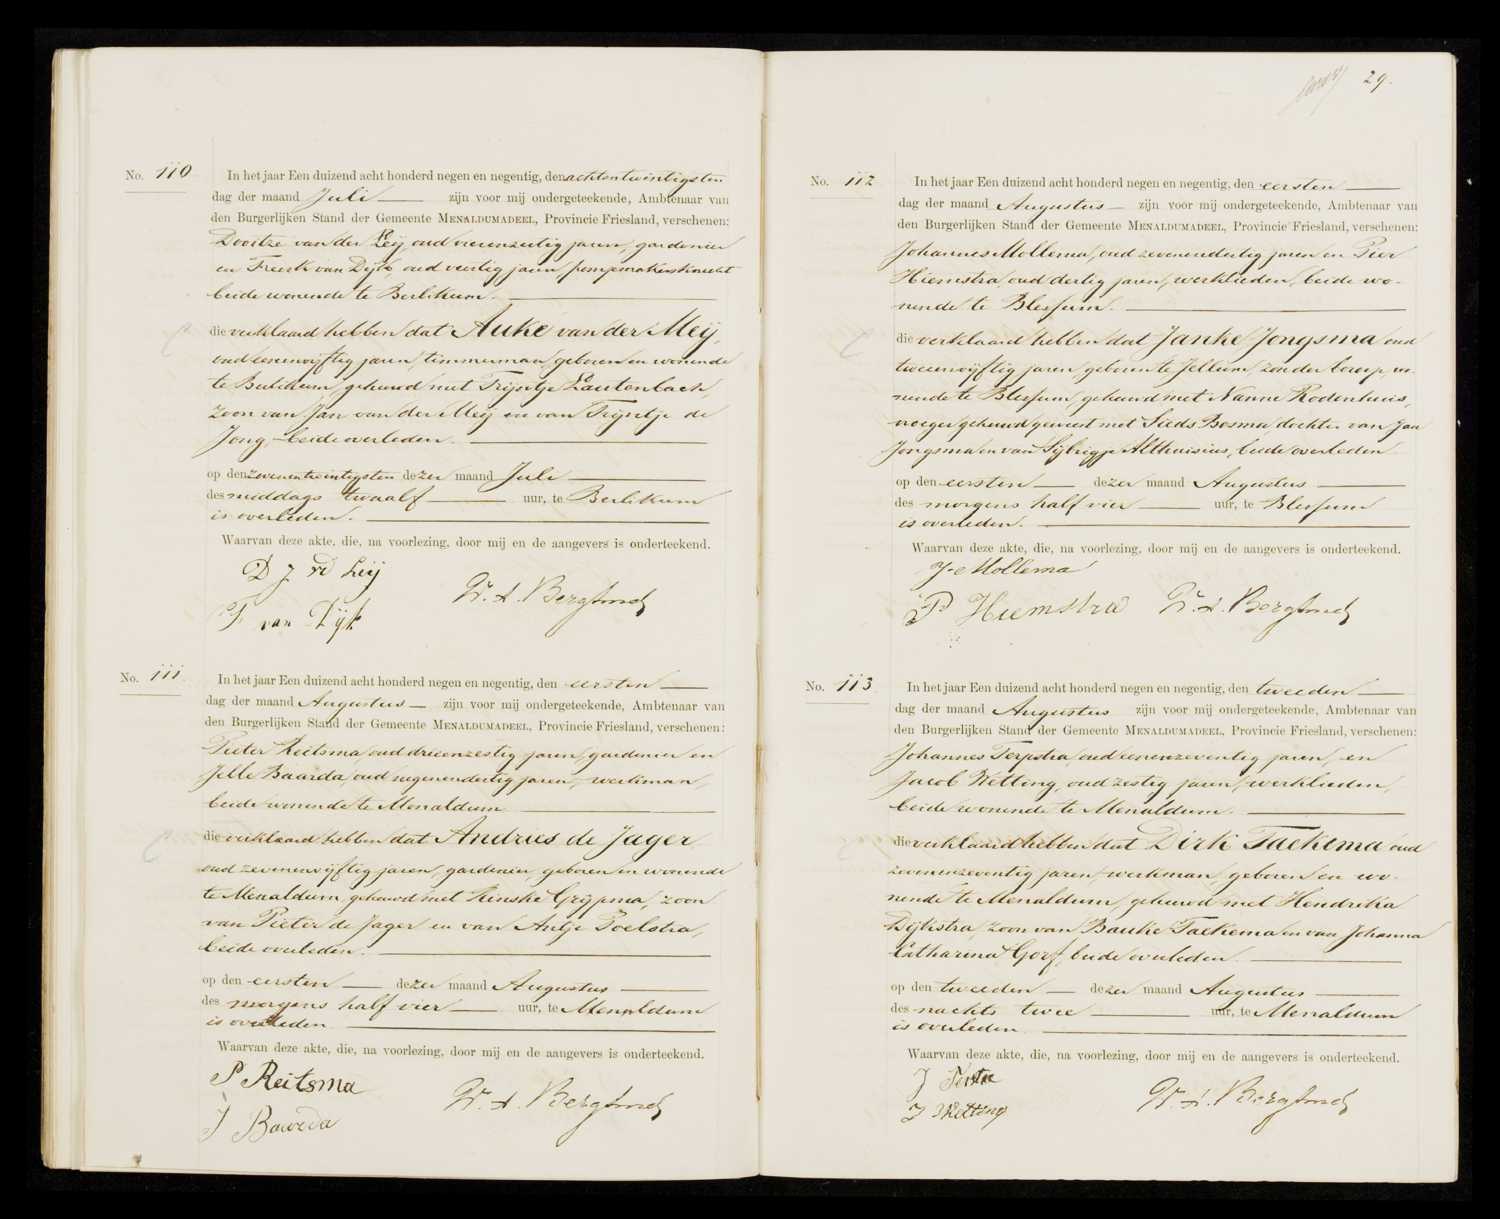 No. 110
In het jaar Een duizend acht honderd negen en negentig, den achtentwintigsten
dag der maand Juli zijn voor mij ondergeteekende, Ambtenaar van
den Burgerlijken Stand der Gemeente MENALDUMADEEL, Provincie Friesland, verschenen:
van der Leij oud vierenzestig jaren, gardenier
en Freerk van Dijk, oud veertig jaren, pompmakersknecht
beide wonende te Berlikum.
die verklaard hebben dat Auke van der Meij,
oud jaren, timmerman, geboren en wonende
te Berlikum, gehuwd met Trijntje Lautenbach,
zoon van Jan van der Meij en van Trijntje de
Jong, beide overleden.
op den zevenentwintigsten dezer maand Juli
des middags twaalf uur, te Berlikum
is overleden.
Waarvan deze akte, die, na voorlezing, door mij en de aangevers is onderteekend.
D J vd Leij
F van Dijk
No. 111
In het jaar Een duizend acht honderd negen en negentig, den eersten
dag der maand Augustus zijn voor mij ondergeteekende, Ambtenaar van
den Burgerlijken Stand der Gemeente MENALDUMADEEL, Provincie Friesland, verschenen:
Pieter Reitsma, oud drieenzestig jaren, gardenier en
Jelle Baarda, oud negenendertig jaren, werkman,
beide wonende te Menaldum
die verklaard hebben dat Andries de Jager
oud zevenenvijftig jaren, gardenier, geboren en wonende
te Menaldum gehuwd met Rinske Grijpma, zoon
van Pieter de Jager en van Antje Poelstra,
beide overleden.
op den eersten dezer maand Augustus
des morgens half vier uur, te Menaldum
is overleden
Waarvan deze akte, die, na voorlezing, door mij en de aangevers is onderteekend.
P Reitsma
J Baarda
29.
No. 112
In het jaar Een duizend acht honderd negen en negentig, den eersten
dag der maand Augustus zijn voor mij ondergeteekende, Ambtenaar van
den Burgerlijken Stand der Gemeente MENALDUMADEEL, Provincie Friesland, verschenen:
Johannes Mollema, oud zevenendertig jaren en Pier
Hiemstra, oud dertig jaren, werklieden, beide wo-
nende te Blessum.
die verklaard hebben dat Janke Jongsma oud
tweeenvijftig jaren, geboren te Jellum, zonder beroep, wo-
nende te Blessum, gehuwd met Nanne Rodenhuis,
vroeger gehuwd geweest met Sieds Bosma, dochter van Jan
Jongsma en van Sijbrigje Althuisius, beide overleden
op den eersten dezer maand Augustus
des morgens half vier uur, te Blessum
is overleden.
Waarvan deze akte, die, na voorlezing, door mij en de aangevers is onderteekend.
J. Mollema
P Hiemstra
No. 113
In het jaar Een duizend acht honderd negen en negentig, den tweeden
dag der maand Augustus zijn voor mij ondergeteekende, Ambtenaar van
den Burgerlijken Stand der Gemeente MENALDUMADEEL, Provincie Friesland, verschenen:
Johannes Terpstra, oud jaren, en
Jacob Wetting, oud zestig jaren, werklieden,
beide wonende te Menaldum.
die verklaard hebben dat Dirk Taekema oud
zevenenzeventig jaren, werkman, geboren en wo-
nende te Menaldum, gehuwd met Hendrika
Dijkstra, zoon van Bauke Taekema en van Johanna
Catharina beide overleden.
op den tweeden dezer maand Augustus
des nachts twee uur, te Menaldum
is overleden
Waarvan deze akte, die, na voorlezing, door mij en de aangevers is onderteekend.
J Wetting